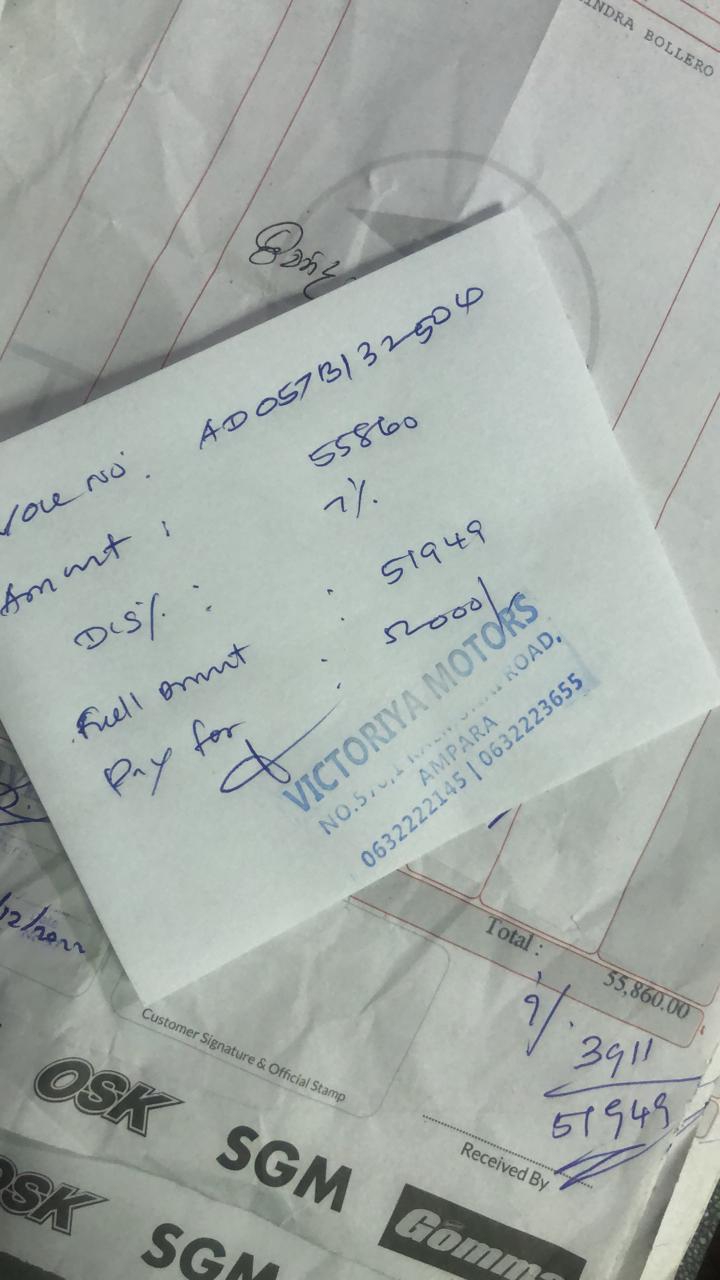 INDRA BOLLERO
No. AD057B132504
Amount : 55860
DIS% : 7%
Full amut : 51949
Pay for : 52000/
VICTORIYA MOTORS
ROAD,
AMPARA
0632222145 | 0632223655
/12/2022
Total : 55,860.00
3911
51949
Customer Signature & Official Stamp
Received By
OSK SGM Gomme
OSK SGM